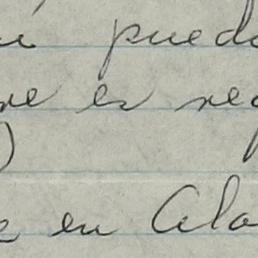 pued
es nec
)
en Ala